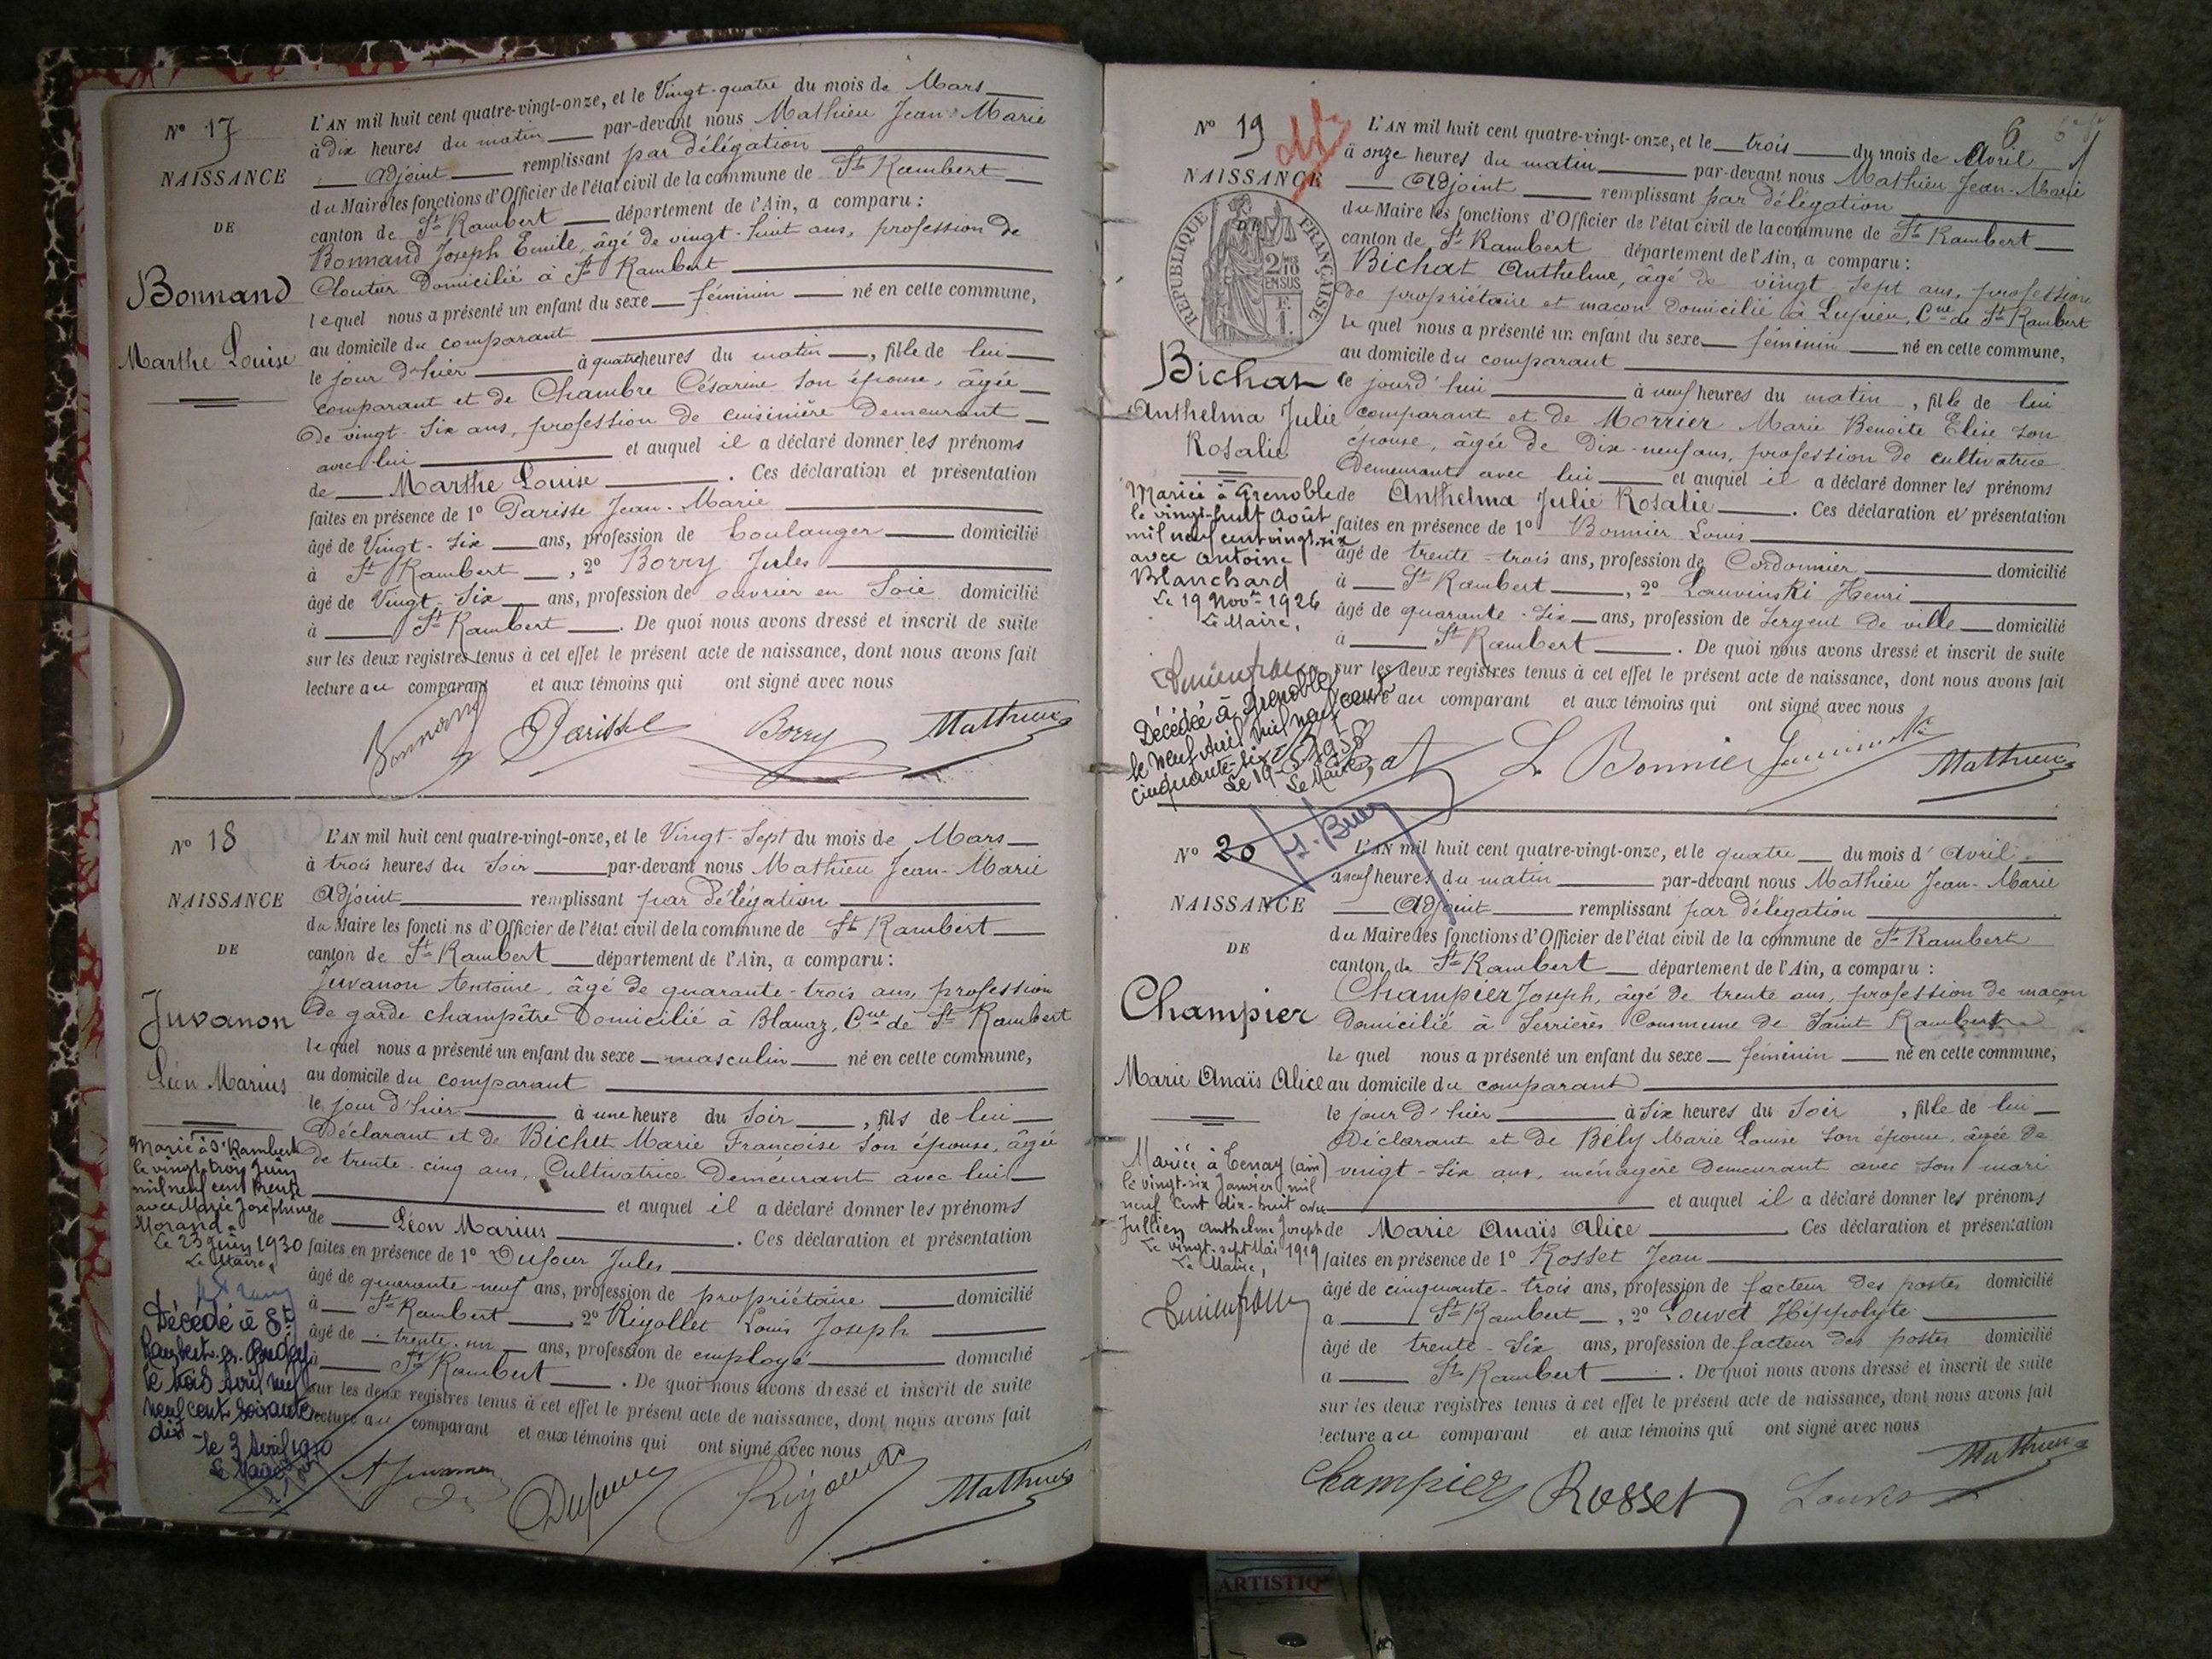 N° 17
NAISSANCE
DE
Bonnand
Marthe Louise
L'AN mil huit cent quatre-vingt-onze, et le Vingt-quatre du mois de Mars
à Dix heures du matin par-devant nous Mathieu Jean-Marie
Adjoint remplissant par délégation
du Maire les fonctions d'Officier de l'état civil de la commune de St Rambert
canton de St Rambert département de l'Ain, a comparu :
Bonnand Joseph Emile, âgé de vingt-huit ans, profession de
Cloutier Domicilié à St Rambert
lequel nous a présenté un enfant du sexe féminin né en cette commune,
au domicile du comparant
le jour d'hier à quatre heures du matin, fille de lui
comparant et de Chambre Césarine son épouse, âgée
de vingt-six ans, profession de cuisinière Demeurant
avec lui et auquel il a déclaré donner les prénoms
de Marthe Louise. Ces déclaration et présentation
faites en présence de 1° Parisse Jean-Marie
âgé de Vingt-six ans, profession de boulanger domicilié
à St Rambert, 2° Borry Jules
âgé de Vingt-Six ans, profession de ouvrier en Soie domicilié
à St Rambert. De quoi nous avons dressé et inscrit de suite
sur les deux registres tenus à cet effet le présent acte de naissance, dont nous avons fait
lecture au comparant et aux témoins qui ont signé avec nous
Bonnand Parisse Borry Mathieu
N° 18
NAISSANCE
DE
Juvanon
Léon Marius
Marié à St Rambert
le vingt-trois Juin
mil neuf cent trente
avec Marie Joséphine
Morand.
Le 23 Juin 1930
Le Maire,
Décédé à St
Rambert-en-Bugey
le trois Avril mil
neuf cent soixante
dix
le 3 Avril 1970
Le Maire
L'AN mil huit cent quatre-vingt-onze, et le Vingt-Sept du mois de Mars
à trois heures du Soir par-devant nous Mathieu Jean-Marie
Adjoint remplissant par Délégation
du Maire les foncti ns d'Officier de l'état civil de la commune de St Rambert
canton de St Rambert département de l'Ain, a comparu :
Juvanon Antoine, âgé de quarante-trois ans, profession
de garde champêtre Domicilié à Blanaz, Cne de St Rambert
lequel nous a présenté un enfant du sexe masculin né en cette commune,
au domicile du comparant
le jour d'hier à une heure du Soir, fils de lui
Déclarant et de Bichet Marie Françoise Son épouse, âgée
de trente-cinq ans, Cultivatrice Demeurant avec lui
et auquel il a déclaré donner les prénoms
de Léon Marius. Ces déclaration et présentation
faites en présence de 1° Dufour Jules
âgé de quarante-neuf ans, profession de propriétaire domicilié
à St Rambert, 2° Rigollet Louis Joseph
âgé de trente-un ans, profession de employé domicilié
à St Rambert. De quoi nous avons dressé et inscrit de suite
sur les deux registres tenus à cet effet le présent acte de naissance, dont nous avons fait
lecture au comparant et aux témoins qui ont signé avec nous
A Juvanon Dufour Rigollet Mathieu
6
N° 19
NAISSANCE
RÉPUBLIQUE FRANÇAISE
2/10 EN SUS
Bichat
Anthelma Julie
Rosalie
Mariée à Grenoble
le vingt-huit Août
mil neuf cent vingt-six
avec Antoine
Blanchard
Le 19 Novre 1926
Le Maire,
Décédée à Grenoble
le neuf Avril mil neuf cent
cinquante-six
Le Maire,
L'AN mil huit cent quatre-vingt-onze, et le trois du mois de Avril
à onze heures du matin par-devant nous Mathieu Jean-Marie
Adjoint remplissant par délégation
du Maire les fonctions d'Officier de l'état civil de la commune de St Rambert
canton de St Rambert département de l'Ain, a comparu :
Bichat Anthelme, âgé de vingt-sept ans, profession
de propriétaire et maçon Domicilié à Lupieu, Cne de St Rambert
lequel nous a présenté un enfant du sexe féminin né en cette commune,
au domicile du comparant
ce jourd'hui à neuf heures du matin, fille de lui
comparant et de Morrier Marie Benoite Elise son
épouse, âgée de Dix-neuf ans, profession de cultivatrice
Demeurant avec lui et auquel il a déclaré donner les prénoms
de Anthelma Julie Rosalie. Ces déclaration et présentation
faites en présence de 1° Bonnier Louis
âgé de trente-trois ans, profession de Cordonnier domicilié
à St Rambert, 2° Louvinski Henri
âgé de quarante-six ans, profession de Sergent de ville domicilié
à St Rambert. De quoi nous avons dressé et inscrit de suite
sur les deux registres tenus à cet effet le présent acte de naissance, dont nous avons fait
lecture au comparant et aux témoins qui ont signé avec nous
L. Bonnier Mathieu
N° 20
NAISSANCE
DE
Champier
Marie Anaïs Alice
Mariée à Tenay (Ain)
le vingt-six Janvier mil
neuf cent dix-huit avec
Jullien Anthelme Joseph
Le vingt-sept Mai 1919
Le Maire,
L'AN mil huit cent quatre-vingt-onze, et le quatre du mois d'Avril
à neuf heures du matin par-devant nous Mathieu Jean-Marie
Adjoint remplissant par délégation
du Maire les fonctions d'Officier de l'état civil de la commune de St Rambert
canton de St Rambert département de l'Ain, a comparu :
Champier Joseph, âgé de trente ans, profession de maçon
domicilié à Serrières Commune de Saint Rambert
lequel nous a présenté un enfant du sexe féminin né en cette commune,
au domicile du comparant
le jour d'hier à Six heures du Soir, fille de lui
Déclarant et de Bély Marie Louise son épouse, âgée de
vingt-six ans, ménagère Demeurant avec son mari
et auquel il a déclaré donner les prénoms
de Marie Anaïs Alice Ces déclaration et présentation
faites en présence de 1° Rosset Jean
âgé de cinquante-trois ans, profession de facteur des postes domicilié
à St Rambert, 2° Louvet Hippolyte
âgé de trente-Six ans, profession de facteur des postes domicilié
à St Rambert. De quoi nous avons dressé et inscrit de suite
sur les deux registres tenus à cet effet le présent acte de naissance, dont nous avons fait
lecture au comparant et aux témoins qui ont signé avec nous
Champier Rosset Louvet Mathieu
ARTISTIQ